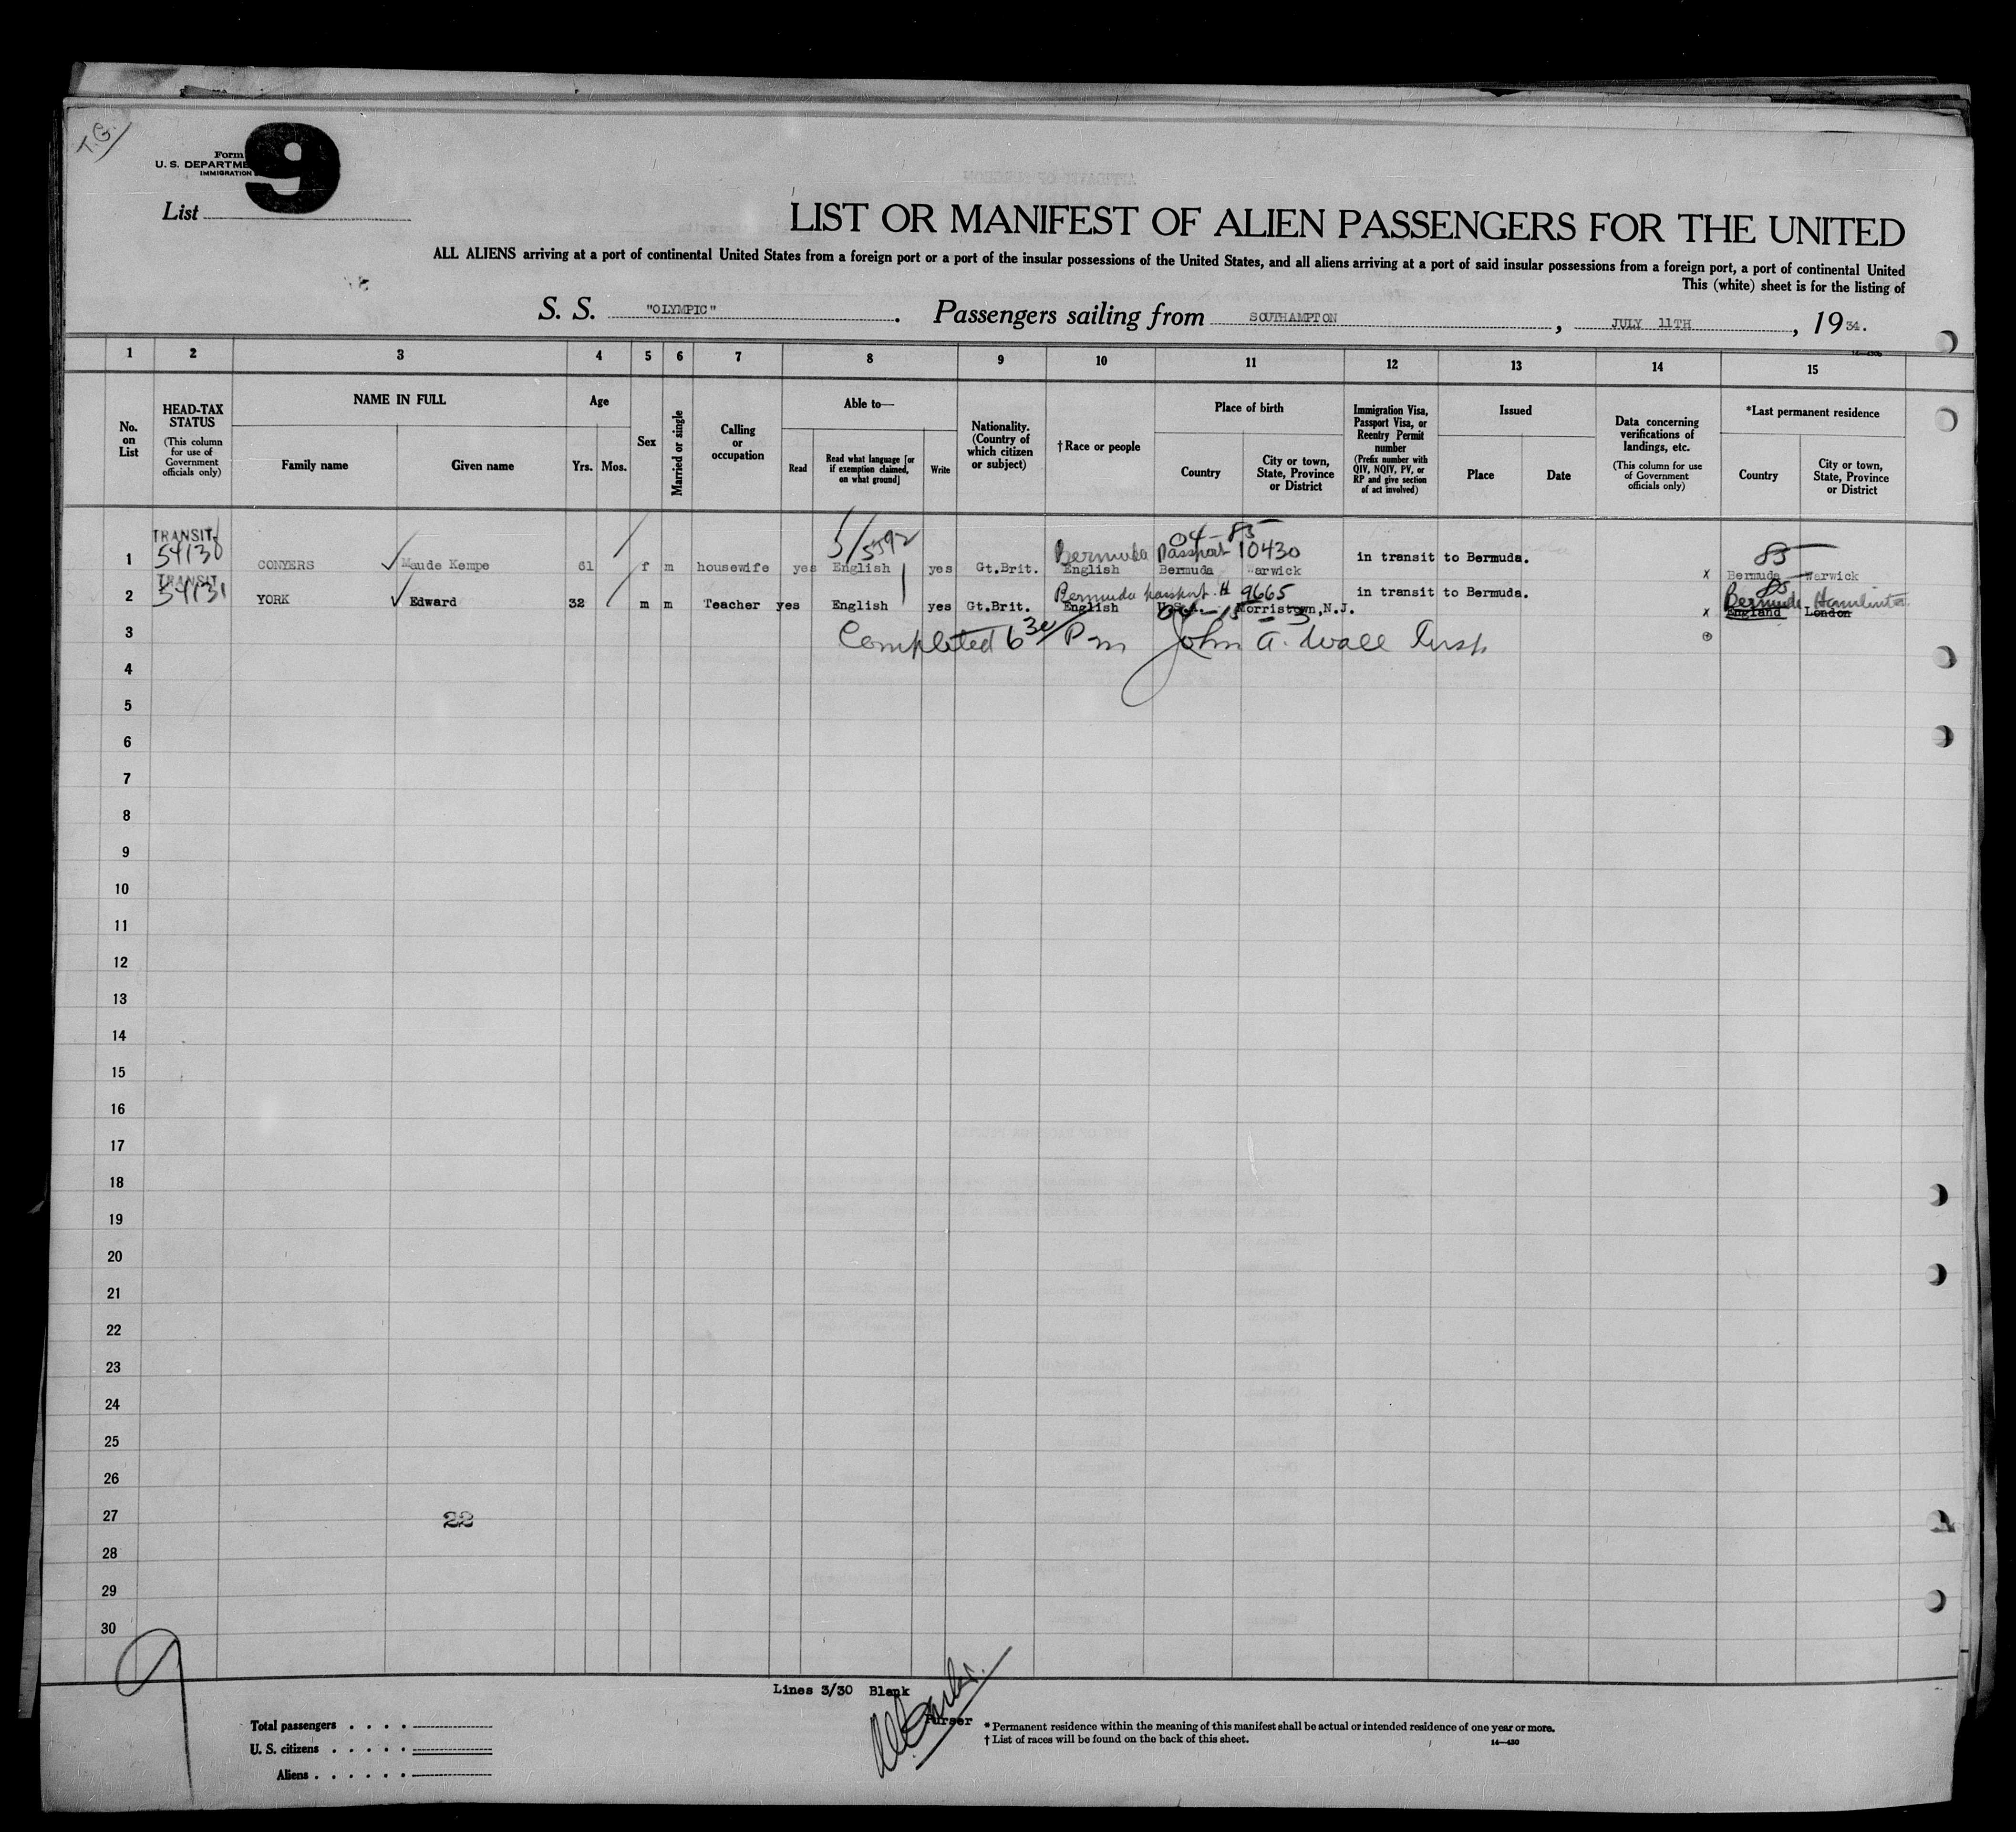 T.G.
Form
U. S. DEPARTME
IMMIGRATION
9
List
LIST OR MANIFEST OF ALIEN PASSENGERS FOR THE UNITED
ALL ALIENS arriving at a port of continental United States from a foreign port or a port of the insular possessions of the United States, and all aliens arriving at a port of said insular possessions from a foreign port, a port of continental United
This (white) sheet is for the listing of
S. S. "OLYMPIC". Passengers sailing from SOUTHAMPTON, JULY 11TH, 1934.
1 2 3 4 5 6 7 8 9 10 11 12 13 14 15
No. on List
HEAD-TAX STATUS
(This column for use of Government officials only)
NAME IN FULL
Family name Given name
Age
Yrs. Mos.
Sex
Married or single
Calling or occupation
Able to—
Read
Read what language [or if exemption claimed, on what ground]
Write
Nationality. (Country of which citizen or subject)
† Race or people
Place of birth
Country
City or town, State, Province or District
Immigration Visa, Passport Visa, or Reentry Permit number
(Prefix number with QIV, NQIV, PV, or RP and give section of act involved)
Issued
Place Date
Data concerning verifications of landings, etc.
(This column for use of Government officials only)
*Last permanent residence
Country
City or town, State, Province or District
TRANSIT 5/5592 04-85
54130 Bermuda Passport 10430 85
1 CONYERS Maude Kempe 61 f m housewife yes English yes Gt.Brit. English Bermuda Warwick in transit to Bermuda. x Bermuda Warwick
TRANSIT
54131 Bermuda passport 9665 85
2 YORK Edward 32 m m Teacher yes English yes Gt.Brit. English U.S.A. Morristown,N.J. in transit to Bermuda. Bermuda Hamilton
x England London
3 Completed 6 30/ Pm John A. Wall Insp
4
5
6
7
8
9
10
11
12
13
14
15
16
17
18
19
20
21
22
23
24
25
26
27 22
28
29
30
9
Lines 3/30 Blank
Purser
Total passengers
U. S. citizens
Aliens
* Permanent residence within the meaning of this manifest shall be actual or intended residence of one year or more.
† List of races will be found on the back of this sheet.
14—430